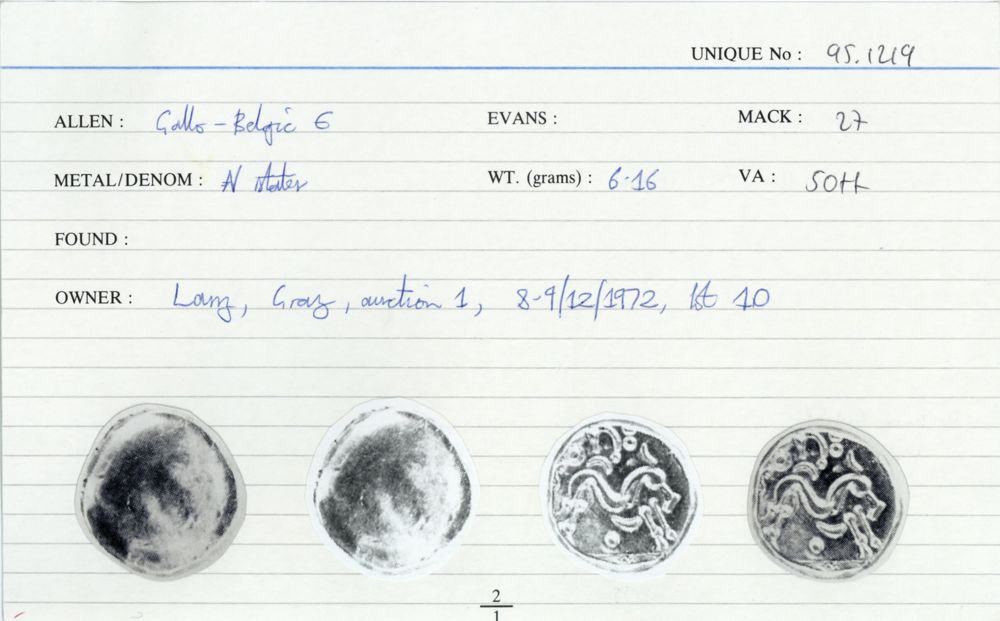 UNIQUE No : 95.1219
ALLEN : Gallo-Belgic E EVANS : MACK : 27
METAL/DENOM : N stater WT. (grams) : 6.16 VA : 50-4
FOUND :
OWNER : Lanz, Graz, auction 1, 8-9/12/1972, lot 10
2
1